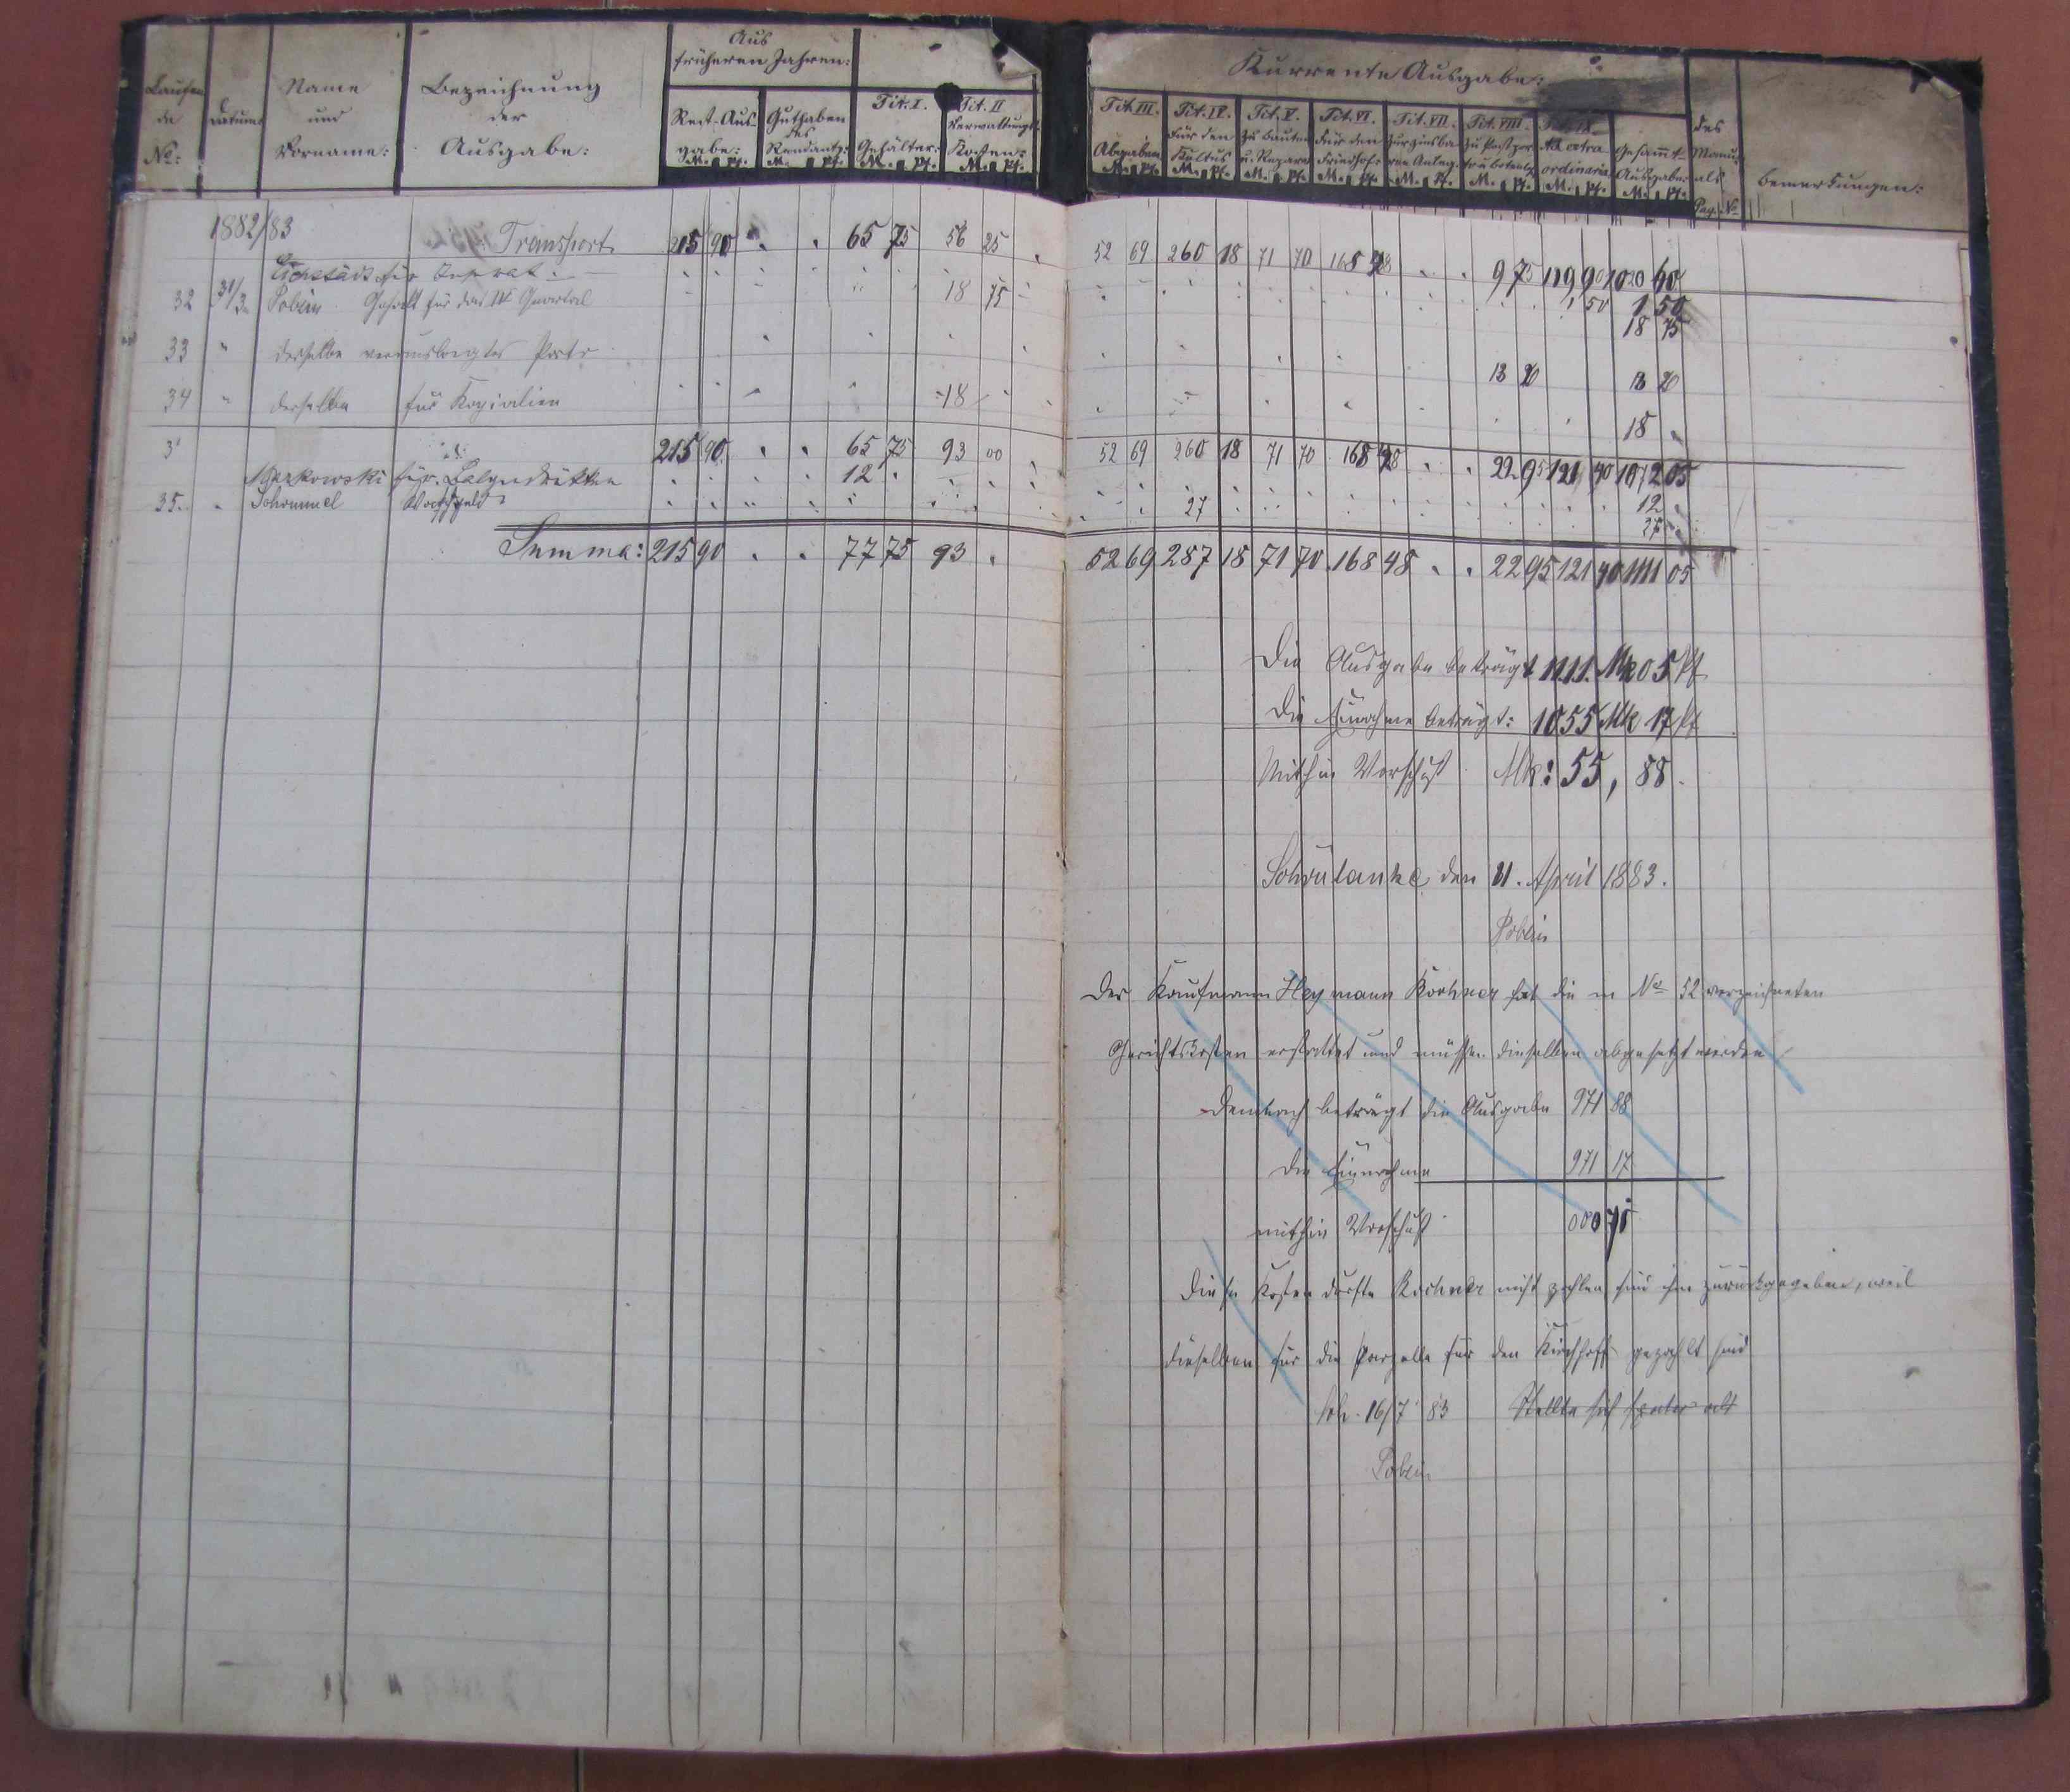 Laufende No: Datum: Name und Vorname: Bezeichnung der Ausgabe:
Aus früheren Jahren:
Rest-Ausgabe: M. Pf. Guthaben des Rendanten: M. Pf. Tit. I. Gehälter: M. Pf. Tit. II Verwaltungs Kosten: M. Pf.
1882/83
Transport 215 90 . . 65 75 56 25
für Inserat
32 31/3 Poblin Gehalt für das IV Quartal 18 75
33 " derselbe verauslagtes Porto
34 " derselbe für Kopialien 18
215 90 . . 65 75 93 00
Markowski für
12
35. " Schrummel
Summa: 215 90 . . 77 75 93 .
Kurrente Ausgabe:
Tit. III. Abgaben M. Pf. Tit. IV. Für den Kultus M. Pf. Tit. V. Zu Bauten u. Repara M. Pf. Tit. VI. Für den Friedhof M. Pf. Tit. VII. Zur zinsba ren Anleg. M. Pf. Tit. VIII. Zu Postpor to u. M. Pf. Tit. IX. Ad extra ordinaria M. Pf. Gesammt-Ausgabe: M. Pf. des Manuals Pag. No Bemerkungen:
52 69 260 18 71 70 168 48 . . 9 75 119 90 1020 60
1 50 1 50
18 75
13 20 13 20
18
52 69 260 18 71 70 168 48 . . 22 95 121 40 1072 05
12
27 27
52 69 287 18 71 70 168 48 . . 22 95 121 40 1111 05
Die Ausgabe beträgt 1111. Mk 05 Pf
Die Einnahme beträgt: 1055 Mk 17 Pf
Mithin Vorschuß Mk: 55, 88.
Schönlanke, den 11. April 1883.
Poblin
Der Kaufmann Heymann Kochner hat die in No 52 verzeichneten
Gerichtskosten erstattet und müssen dieselben abgesetzt werden
Demnach beträgt die Ausgabe 971 88
Die Einnahme 971 17
mithin Vorschuß 000 71
Diese Kosten durfte Kochner nicht zahlen sind ihm zurückgegeben, weil
dieselben für die Parzelle für den Kirchhoff gezahlt sind
Sch. 16/7 83 Stellte sich später
Poblin